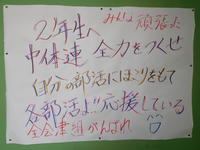 2年生へ みんな 頑張よ
中体連 全力をつくせ
自分の部活にほこりをもて
各部活より応援している
全会津 がんばれ